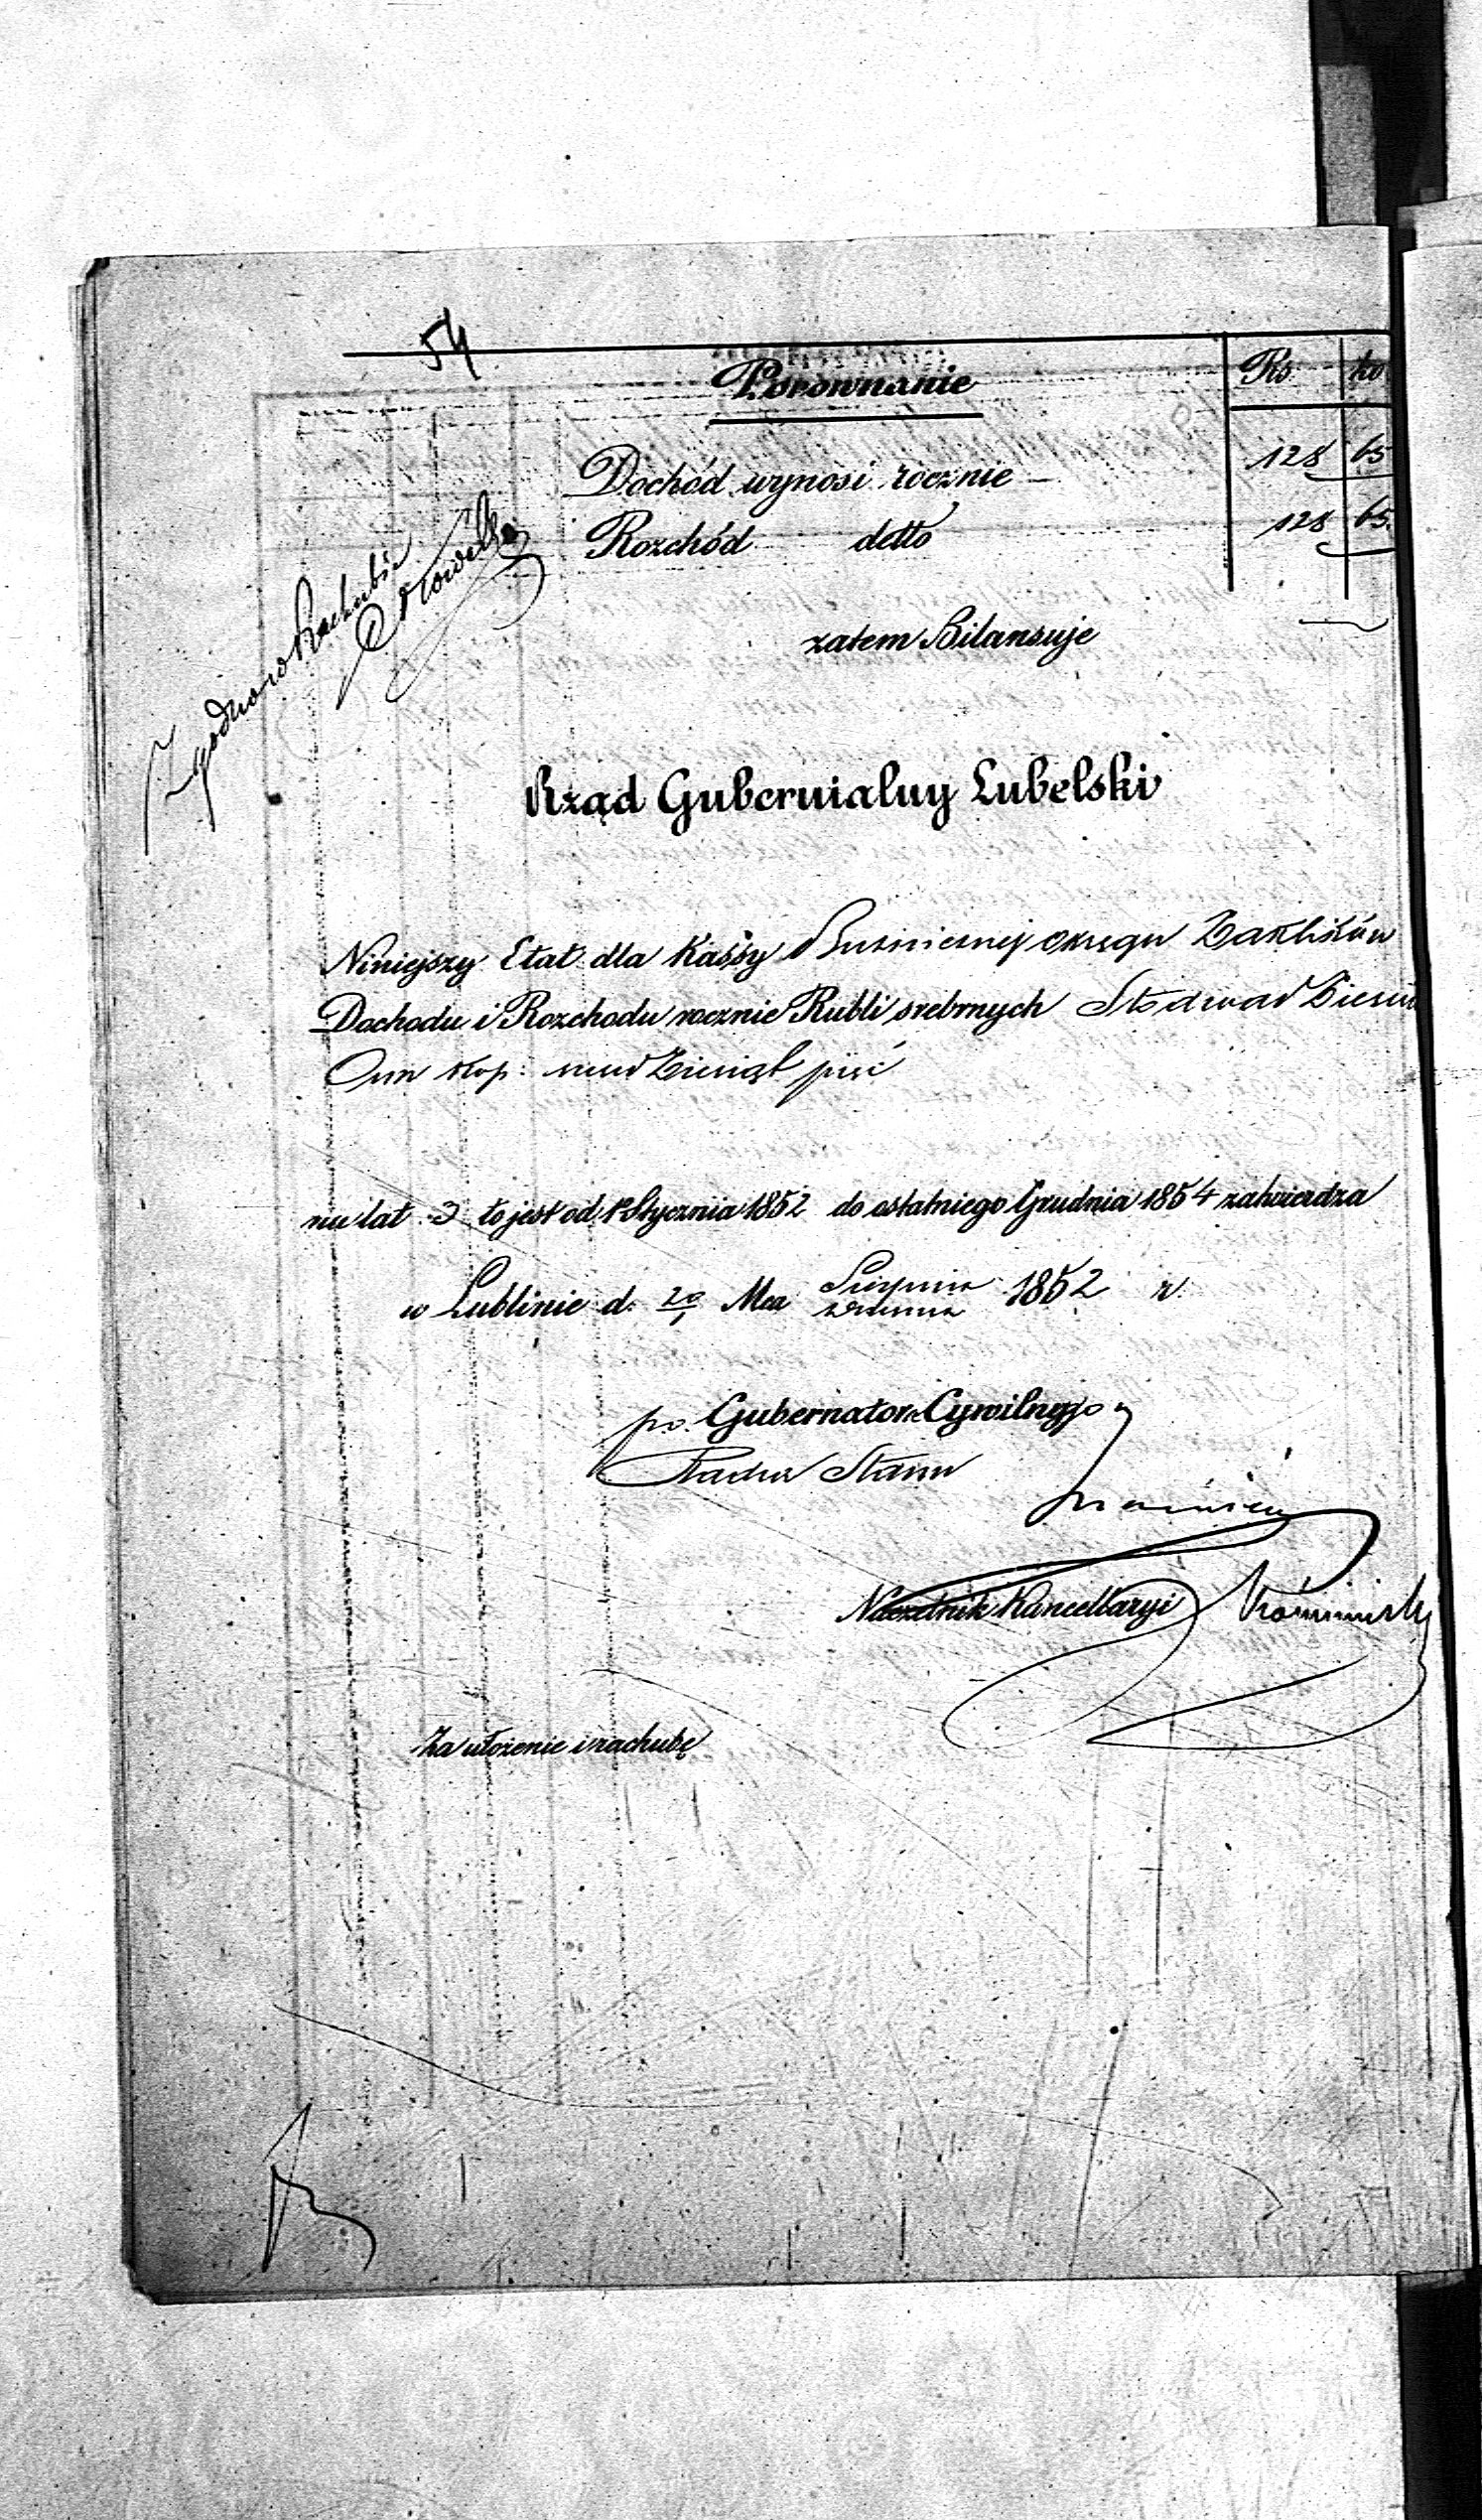 54.
Porównanie
Rs. ko
Dochód wynosi rocznie 128 65
Rozchód detto 128 65.
Zgodno w Rachubie
zatem Bilansuje
Rząd Gubernialny Lubelski
Niniejszy Etat dla Kassy Bużniczney okręgu Zaklików
Dochodu i Rozchodu rocznie Rubli srebrnych Sto dwadzieścia
Osm kop: pięć
na lat 3 to jest od 1 Stycznia 1852 do ostatniego Grudnia 1854 zatwierdza
w Lublinie d. 20 Mca Sierpnia 1852 r.
po. Gubernatora Cywilnego
Radca Stanu
Naczelnik Kancellaryi
Za ułożenie i rachubę